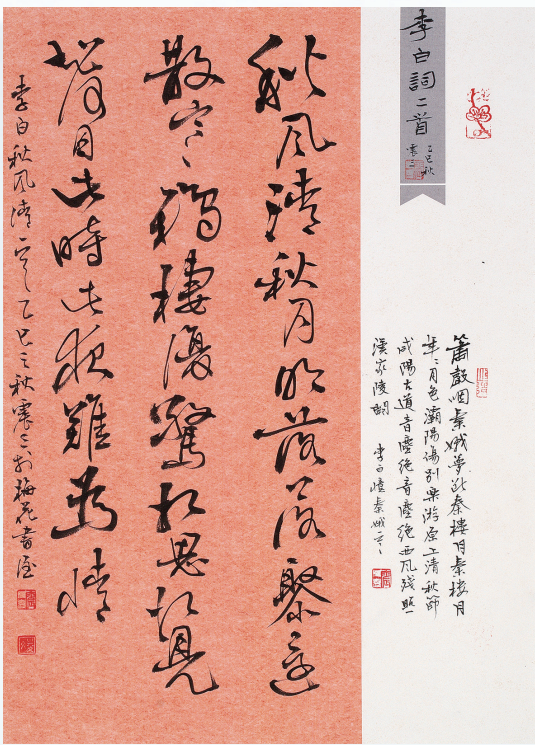 李白詞二首
乙巳秋
震之
簫聲咽秦娥夢斷秦樓月秦樓月
年〻月色灞陽傷別樂游原上清秋節
咸陽古道音塵絕音塵絕西風殘照
漢家陵闕 李白憶秦娥
秋風清秋月明落葉聚還
散寒鴉棲復驚相思相見
知何日此時此夜難爲情
李白秋風清 乙巳之秋震之於梅花書屋